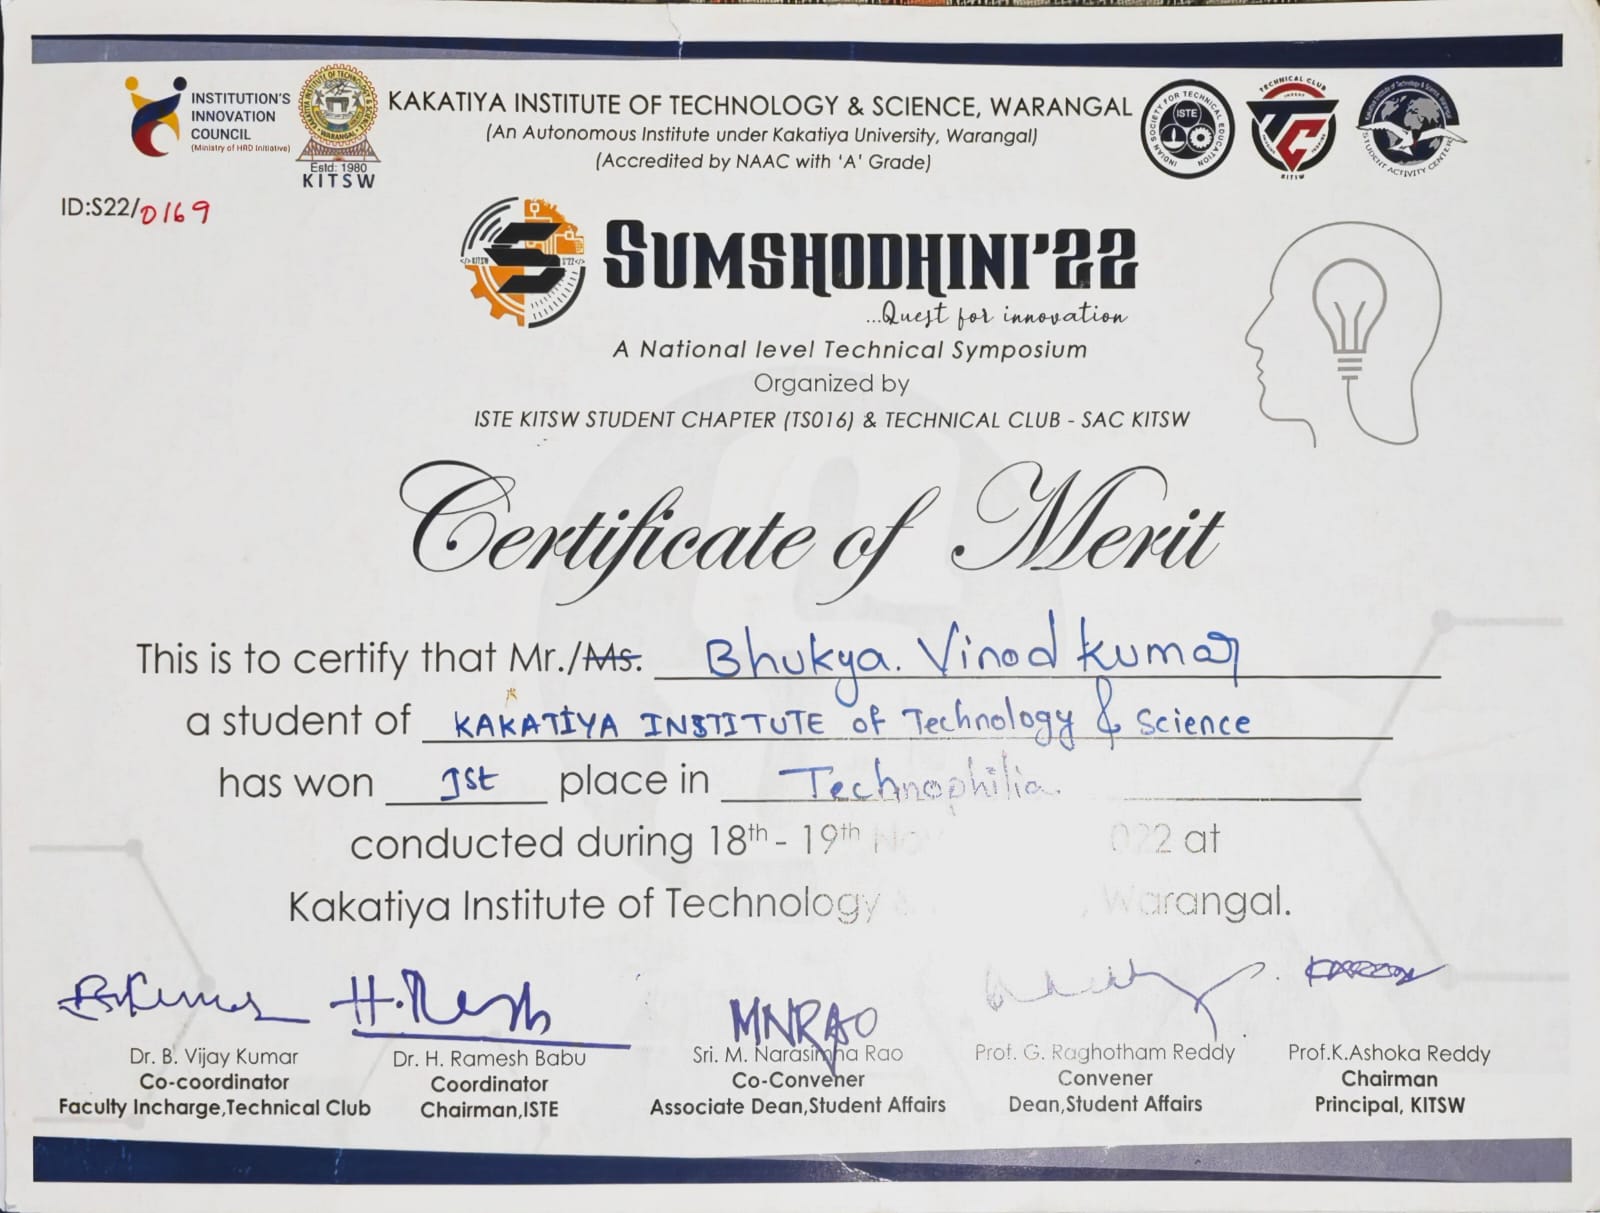 INSTITUTION'S
INNOVATION
COUNCIL
(Ministry of HRD Initiative)
Estd: 1980
KITSW
KAKATIYA INSTITUTE OF TECHNOLOGY & SCIENCE, WARANGAL
(An Autonomous Institute under Kakatiya University, Warangal)
(Accredited by NAAC with 'A' Grade)
INDIAN SOCIETY FOR TECHNICAL EDUCATION
ISTE
TECHNICAL CLUB
TC
KITSW
STUDENT ACTIVITY CENTER
ID:S22/0169
SUMSHODHINI'22
...Quest for innovation
A National level Technical Symposium
Organized by
ISTE KITSW STUDENT CHAPTER (TS016) & TECHNICAL CLUB - SAC KITSW
Certificate of Merit
This is to certify that Mr./Ms. Bhukya. Vinod kumar
a student of KAKATIYA INSTITUTE of Technology & Science
has won 1st place in Technophilia.
conducted during 18th - 19th No 022 at
Kakatiya Institute of Technology & , Warangal.
H.Ramesh
MNRAO
Dr. B. Vijay Kumar
Co-coordinator
Faculty Incharge,Technical Club
Dr. H. Ramesh Babu
Coordinator
Chairman,ISTE
Sri. M. Narasimha Rao
Co-Convener
Associate Dean,Student Affairs
Prof. G. Raghotham Reddy
Convener
Dean,Student Affairs
Prof.K.Ashoka Reddy
Chairman
Principal, KITSW